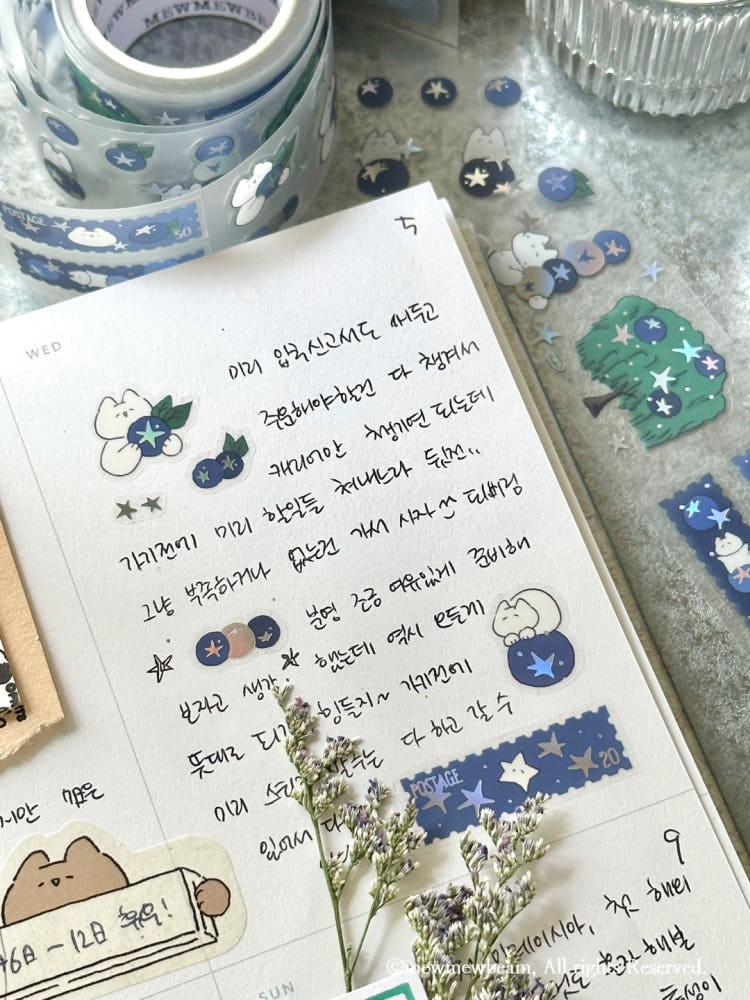 MEWMEWBE
POSTAGE
50
5
WED
미리 입국신고서도 써두고
주문해야할건 다 챙겨서
캐리어만 챙기면 되는데
가기전에 미리 할일들 쳐내느라 뒤전..
그냥 부족하거나 없는건 가서 사자~ 되버림
분명 조금 여유있게 준비해
보자고 생각 했는데 역시 모든게
뜻대로 되기 힘들지~ 가기전에
미리 는 다 하고 갈 수
있어서 다
POSTAGE
20
6日 ~ 12日 휴일!
9
말레이시아, 첫 해외
SUN
©mewmewbeam, All rights Reserved.